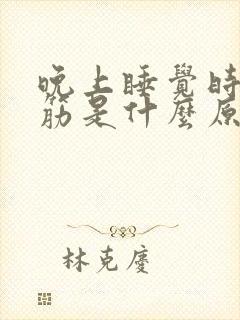 晚上睡覺時
筋是什麼原
林克慶